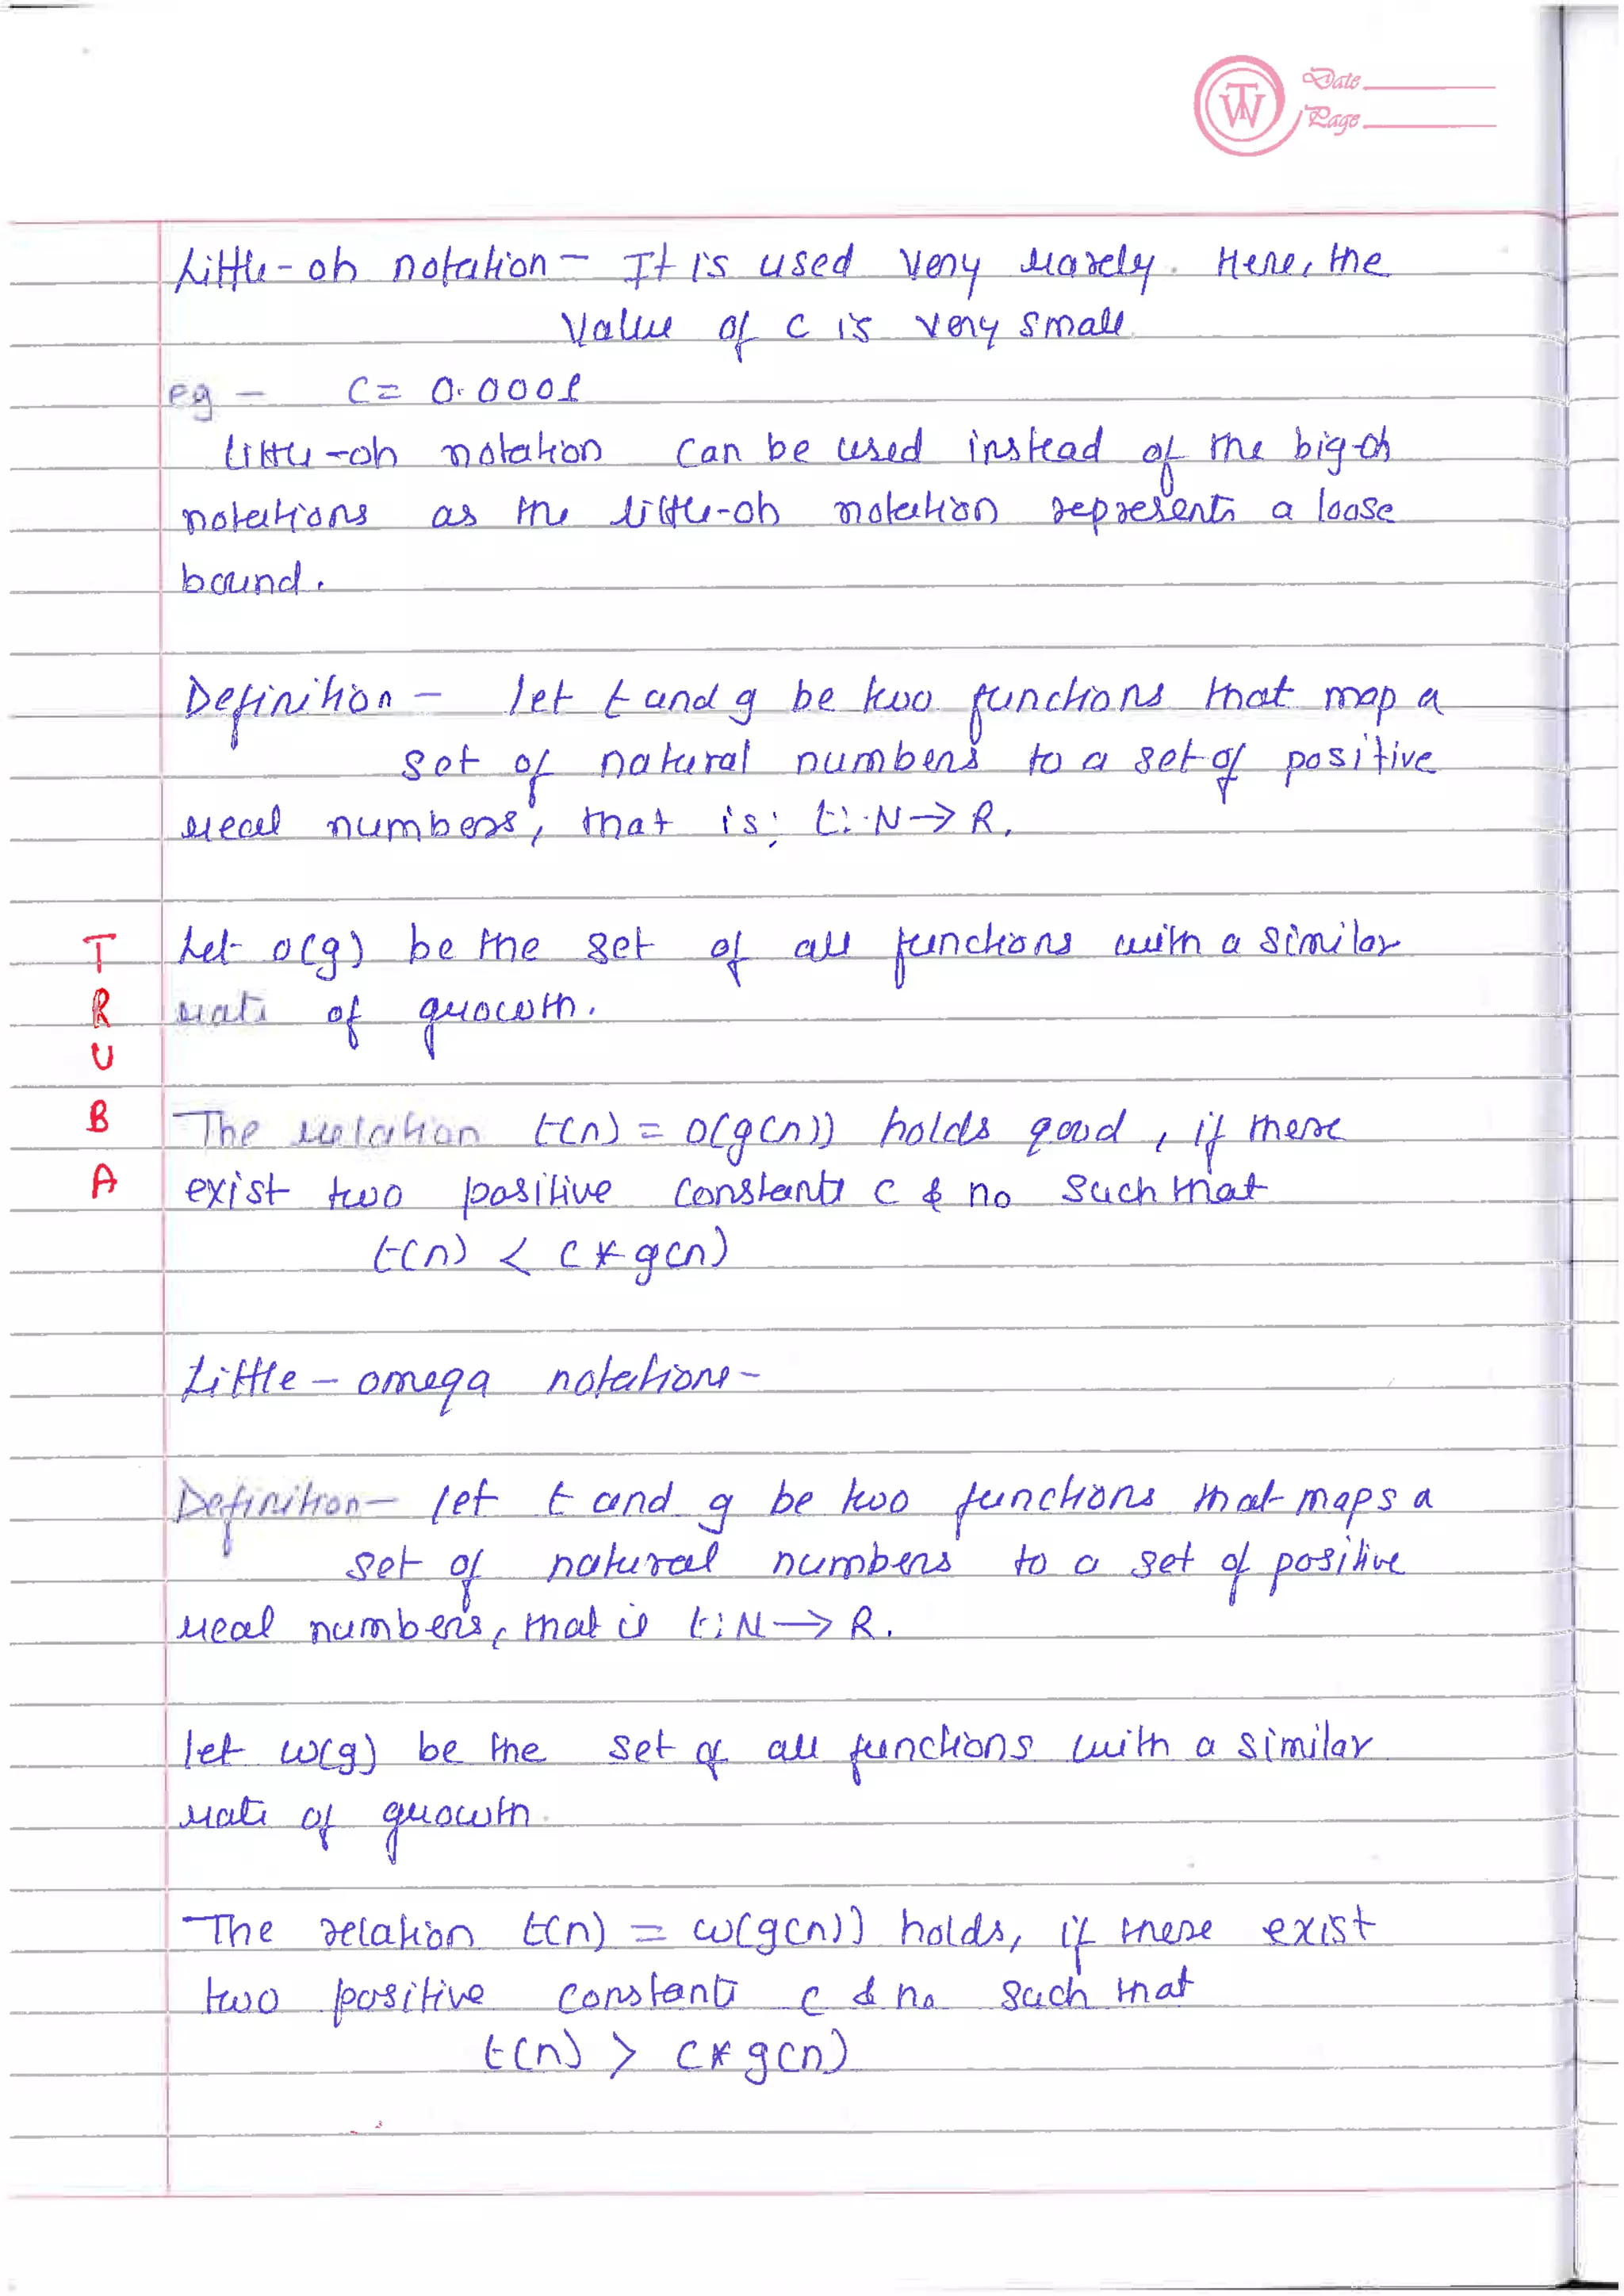 TW Date
Page
Little-oh notation - It is used very rarely. Here, the
Value of c is very small
eg - C = 0.0001
little-oh notation can be used instead of the big-oh
notations as the little-oh notation represents a loose
bound.
Definition - let t and g be two functions that map a
set of natural numbers to a set of positive
real numbers, that is; t: N → R.
Let o(g) be the set of all functions with a similar
rate of growth.
The relation t(n) = o(g(n)) holds good, if there
exist two positive constants c & n₀ such that
t(n) < c * g(n)
Little - omega notations -
Definition - let t and g be two functions that maps a
set of natural numbers to a set of positive
real numbers, that is t: N → R.
let ω(g) be the set of all functions with a similar
rate of growth.
The relation t(n) = ω(g(n)) holds, if there exist
two positive constants c & n₀ such that
t(n) > c * g(n)
T
R
U
B
A